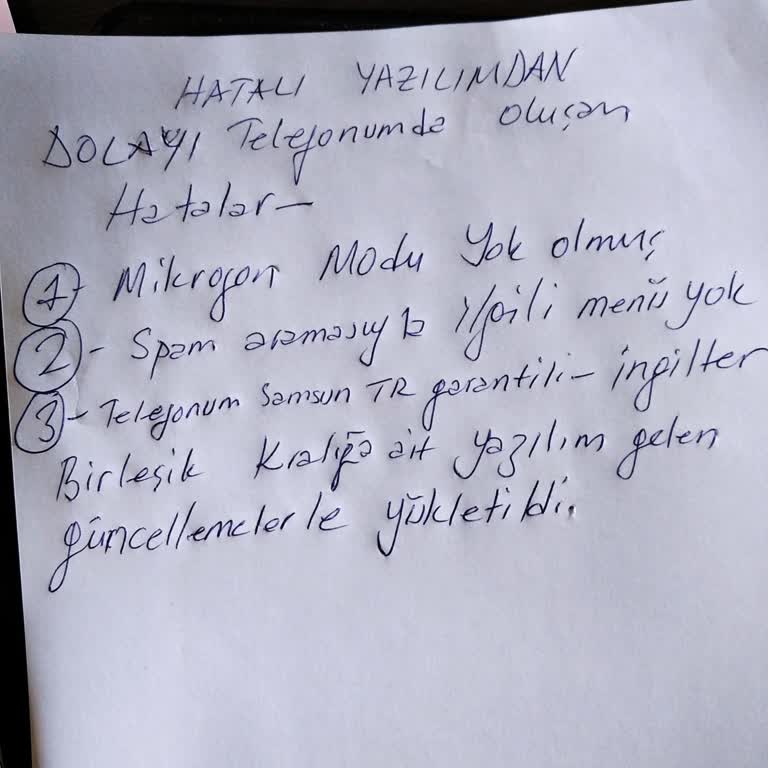 HATALI YAZILIMDAN
DOLAYI Telefonumda oluşan
Hatalar-
1- Mikrofon Modu Yok olmuş
2- Spam aramasıyla ilgili menü yok
3- Telefonum Samsun TR garantili- ingilter
Birleşik Kralığa ait yazılım gelen
güncellemelerle yükletildi.